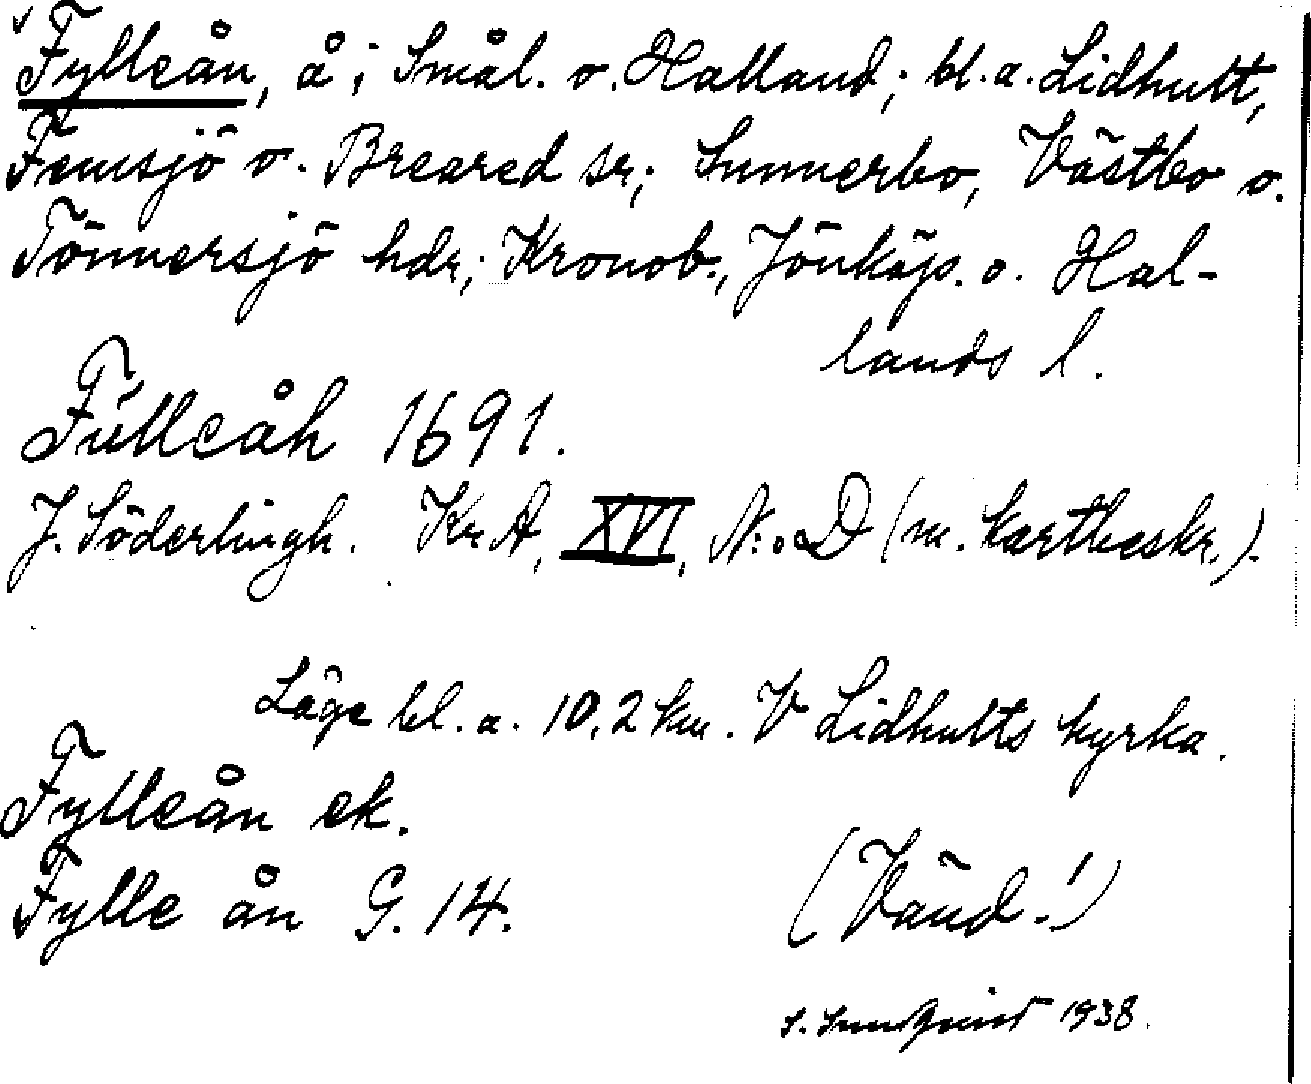 Fylleån, å i Smål. o. Halland; bl. a. Lidhult,
Femsjö o. Breared sr; Sunnerbo, Västbo o.
Tönnersjö hdr; Kronob., Jönköp. o. Hal-
lands l.
Fülleåh 1691.
J. Söderlingh. Kr. A, XVI, N:o D (m. kartbeskr.).
Läge bl. a. 10,2 km. V Lidhults kyrka.
Fylleån ek.
Fylle ån G. 14.
(Vänd!)
S. Sundqvist 1938.